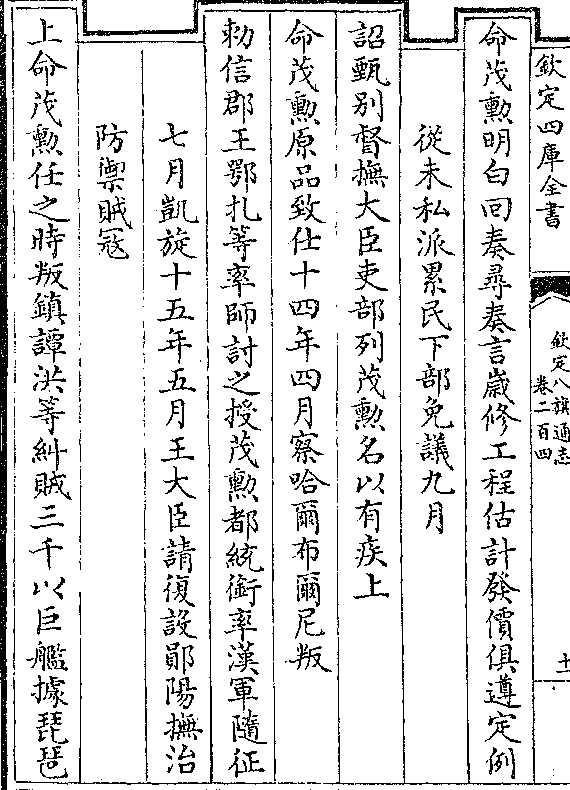 欽定四庫全書
欽定八旗通志
卷二百四
十一
命茂勲明白回奏尋奏言歲修工程估計發價俱遵定例
從未私派累民下部免議九月
詔甄别督撫大臣吏部列茂勲名以有疾上
命茂勲原品致仕十四年四月察哈爾布爾尼叛
勅信郡王鄂扎等率師討之授茂勲都統銜率漢軍隨征
七月凱旋十五年五月王大臣請復設鄖陽撫治
防禦賊冦
上命茂勲任之時叛鎮譚洪等糾賊三千以巨艦據琵琶